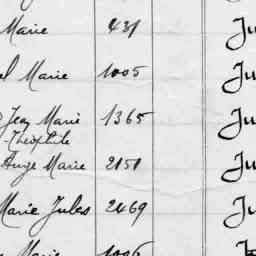 Marie 431 Ju
el Marie 1005 Ju
Jean Marie 1365 Ju
Théophile
Ange Marie 2151 Ju
Marie Jules 2469 Ju
Marie